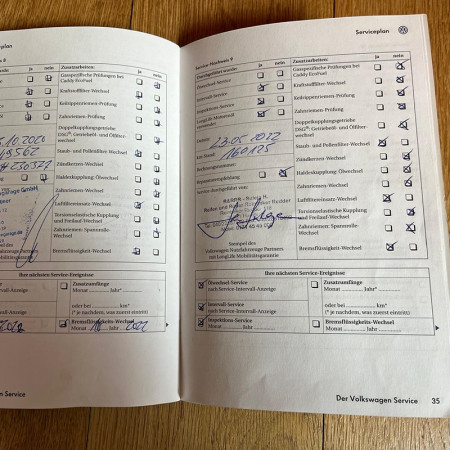 ceplan
Serviceplan
Zusatzarbeiten: ja nein
Gasspezifische Prüfungen bei
Caddy EcoFuel
Kraftstofffilter-Wechsel
Keilrippenriemen-Prüfung
Zahnriemen-Prüfung
Doppelkupplungsgetriebe
DSG®, Getriebeöl- und Ölfilter-
wechsel
Staub- und Pollenfilter-Wechsel
Zündkerzen-Wechsel
Haldexkupplung Ölwechsel
Zahnriemen-Wechsel
Luftfiltereinsatz-Wechsel
Torsionselastische Kupplung
und Freilauf-Wechsel
Zahnriemen: Spannrolle-
Wechsel
Bremsflüssigkeit-Wechsel
Ihre nächsten Service-Ereignisse
Zusatzumfänge
Monat Jahr*
oder bei km*
(* je nachdem, was zuerst eintritt)
Bremsflüssigkeits-Wechsel
Monat Jahr 2022
n Service
Service-Nachweis 9
Durchgeführt wurde: ja nein
Ölwechsel-Service
Intervall-Service
Inspektions-Service
LongLife Motoröl
Datum 23.05.2022
km-Stand 160125
Service durchgeführt von:
Stempel des
Volkswagen Nutzfahrzeuge Partners
mit LongLife Mobilitätsgarantie
Zusatzarbeiten: ja nein
Gasspezifische Prüfungen bei
Caddy EcoFuel
Kraftstofffilter-Wechsel
Keilrippenriemen-Prüfung
Zahnriemen-Prüfung
Doppelkupplungsgetriebe
DSG®, Getriebeöl- und Ölfilter-
wechsel
Staub- und Pollenfilter-Wechsel
Zündkerzen-Wechsel
Haldexkupplung Ölwechsel
Zahnriemen-Wechsel
Luftfiltereinsatz-Wechsel
Torsionselastische Kupplung
und Freilauf-Wechsel
Zahnriemen: Spannrolle-
Wechsel
Bremsflüssigkeit-Wechsel
Ihre nächsten Service-Ereignisse
Ölwechsel-Service
nach Service-Intervall-Anzeige
Intervall-Service
nach Service-Intervall-Anzeige
Inspektions-Service
Monat Jahr
Zusatzumfänge
Monat Jahr*
oder bei km*
(* je nachdem, was zuerst eintritt)
Bremsflüssigkeits-Wechsel
Monat Jahr
Der Volkswagen Service 35